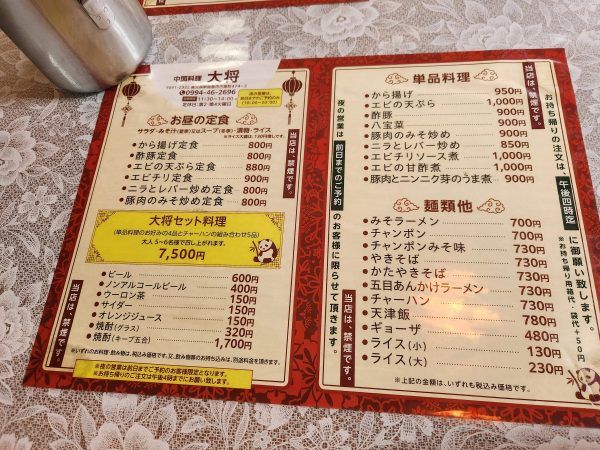 中国料理 大将
0994-46-2696
11:30~14:00
定休日:第2・第4火曜日
お昼の定食
サラダ・みそ汁(夏季)又はスープ(冬季)・漬物・ライス
から揚げ定食 800円
酢豚定食 800円
エビの天ぷら定食 880円
エビチリ定食 900円
ニラとレバー炒め定食 800円
豚肉のみそ炒め定食 800円
当店は、禁煙です。
大将セット料理
(単品料理のお好みの4品とチャーハンの組み合わせ5品)
大人5~6名様で召し上がれます。
7,500円
ビール 600円
ノンアルコールビール 400円
ウーロン茶 150円
サイダー 150円
オレンジジュース 150円
焼酎(グラス) 320円
焼酎(キープ五合) 1,700円
当店は、禁煙です。
※いずれのお料理・飲み物は、税込み価格です。又、飲み物類のお持ち込みは、別途料金を頂きます。
※夜の営業は前日までご予約のお客様限定となります。
※お持ち帰りのご注文は午後4時までにお願い致します。
当店は、禁煙です。
単品料理
から揚げ 950円
エビの天ぷら 1,000円
酢豚 900円
八宝菜 900円
豚肉のみそ炒め 900円
ニラとレバー炒め 850円
エビチリソース煮 1,000円
エビの甘酢煮 1,000円
豚肉とニンニク芽のうま煮 900円
麺類他
みそラーメン 700円
チャンポン 700円
チャンポンみそ味 730円
やきそば 730円
かたやきそば 730円
五目あんかけラーメン 730円
チャーハン 730円
天津飯 780円
ギョーザ 480円
ライス(小) 130円
ライス(大) 230円
※上記の金額は、いずれも税込み価格です。
夜の営業は前日までのご予約のお客様に限らせて頂きます。
当店は、禁煙です。
お持ち帰りの注文は、午後四時迄に御願い致します。
※お持ち帰り用箱代・袋代+50円